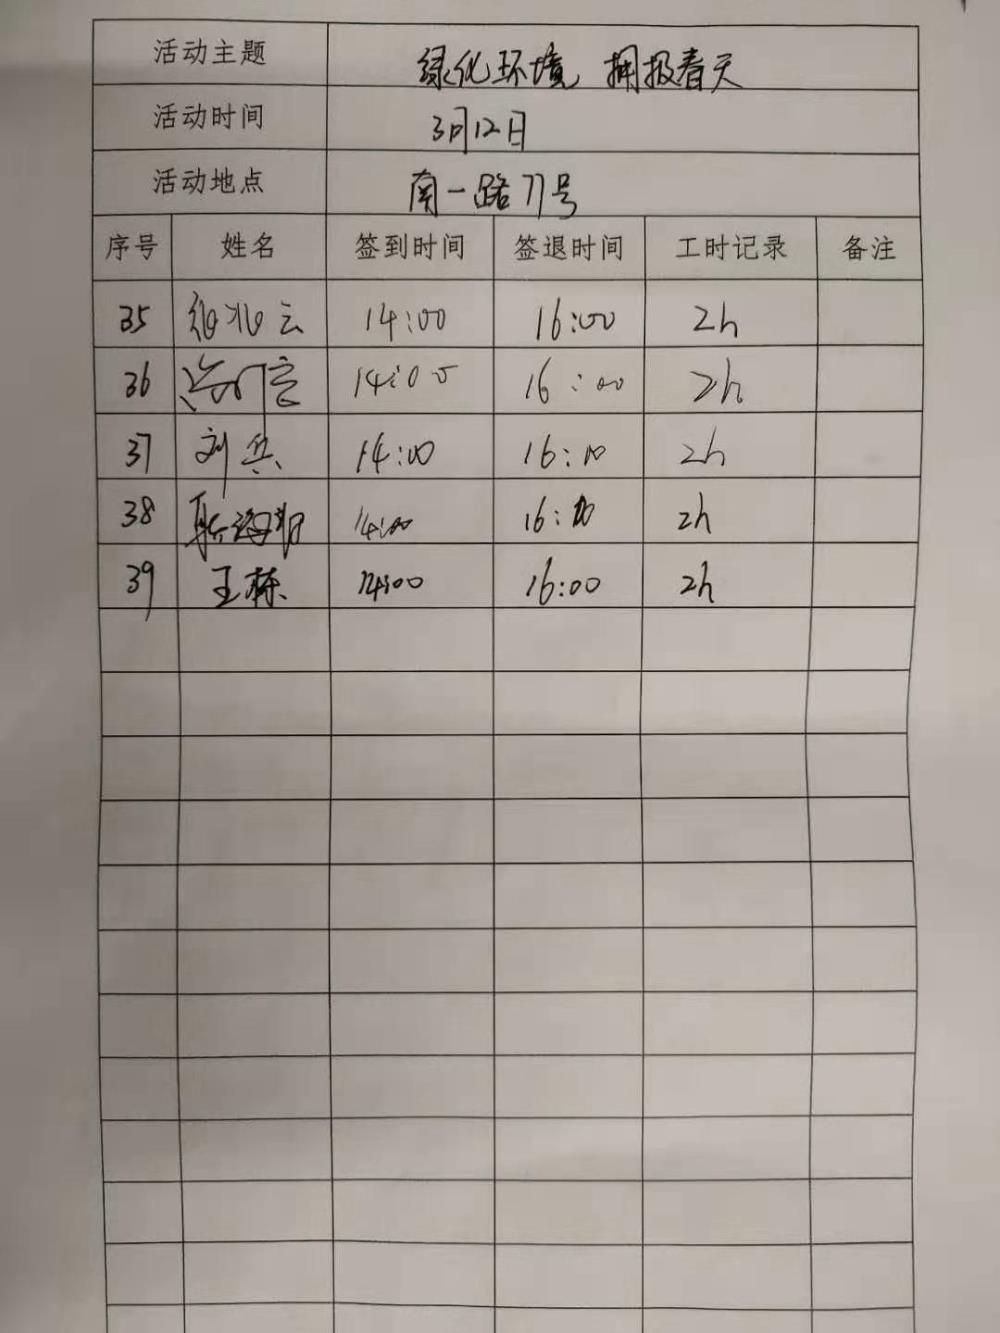 活动主题 绿化环境 拥报春天
活动时间 3月12日
活动地点 南一路77号
序号 姓名 签到时间 签退时间 工时记录 备注
35 14:00 16:00 2h
36 14:00 16:00 2h
37 刘兵 14:00 16:00 2h
38 14:00 16:00 2h
39 王栋 14:00 16:00 2h